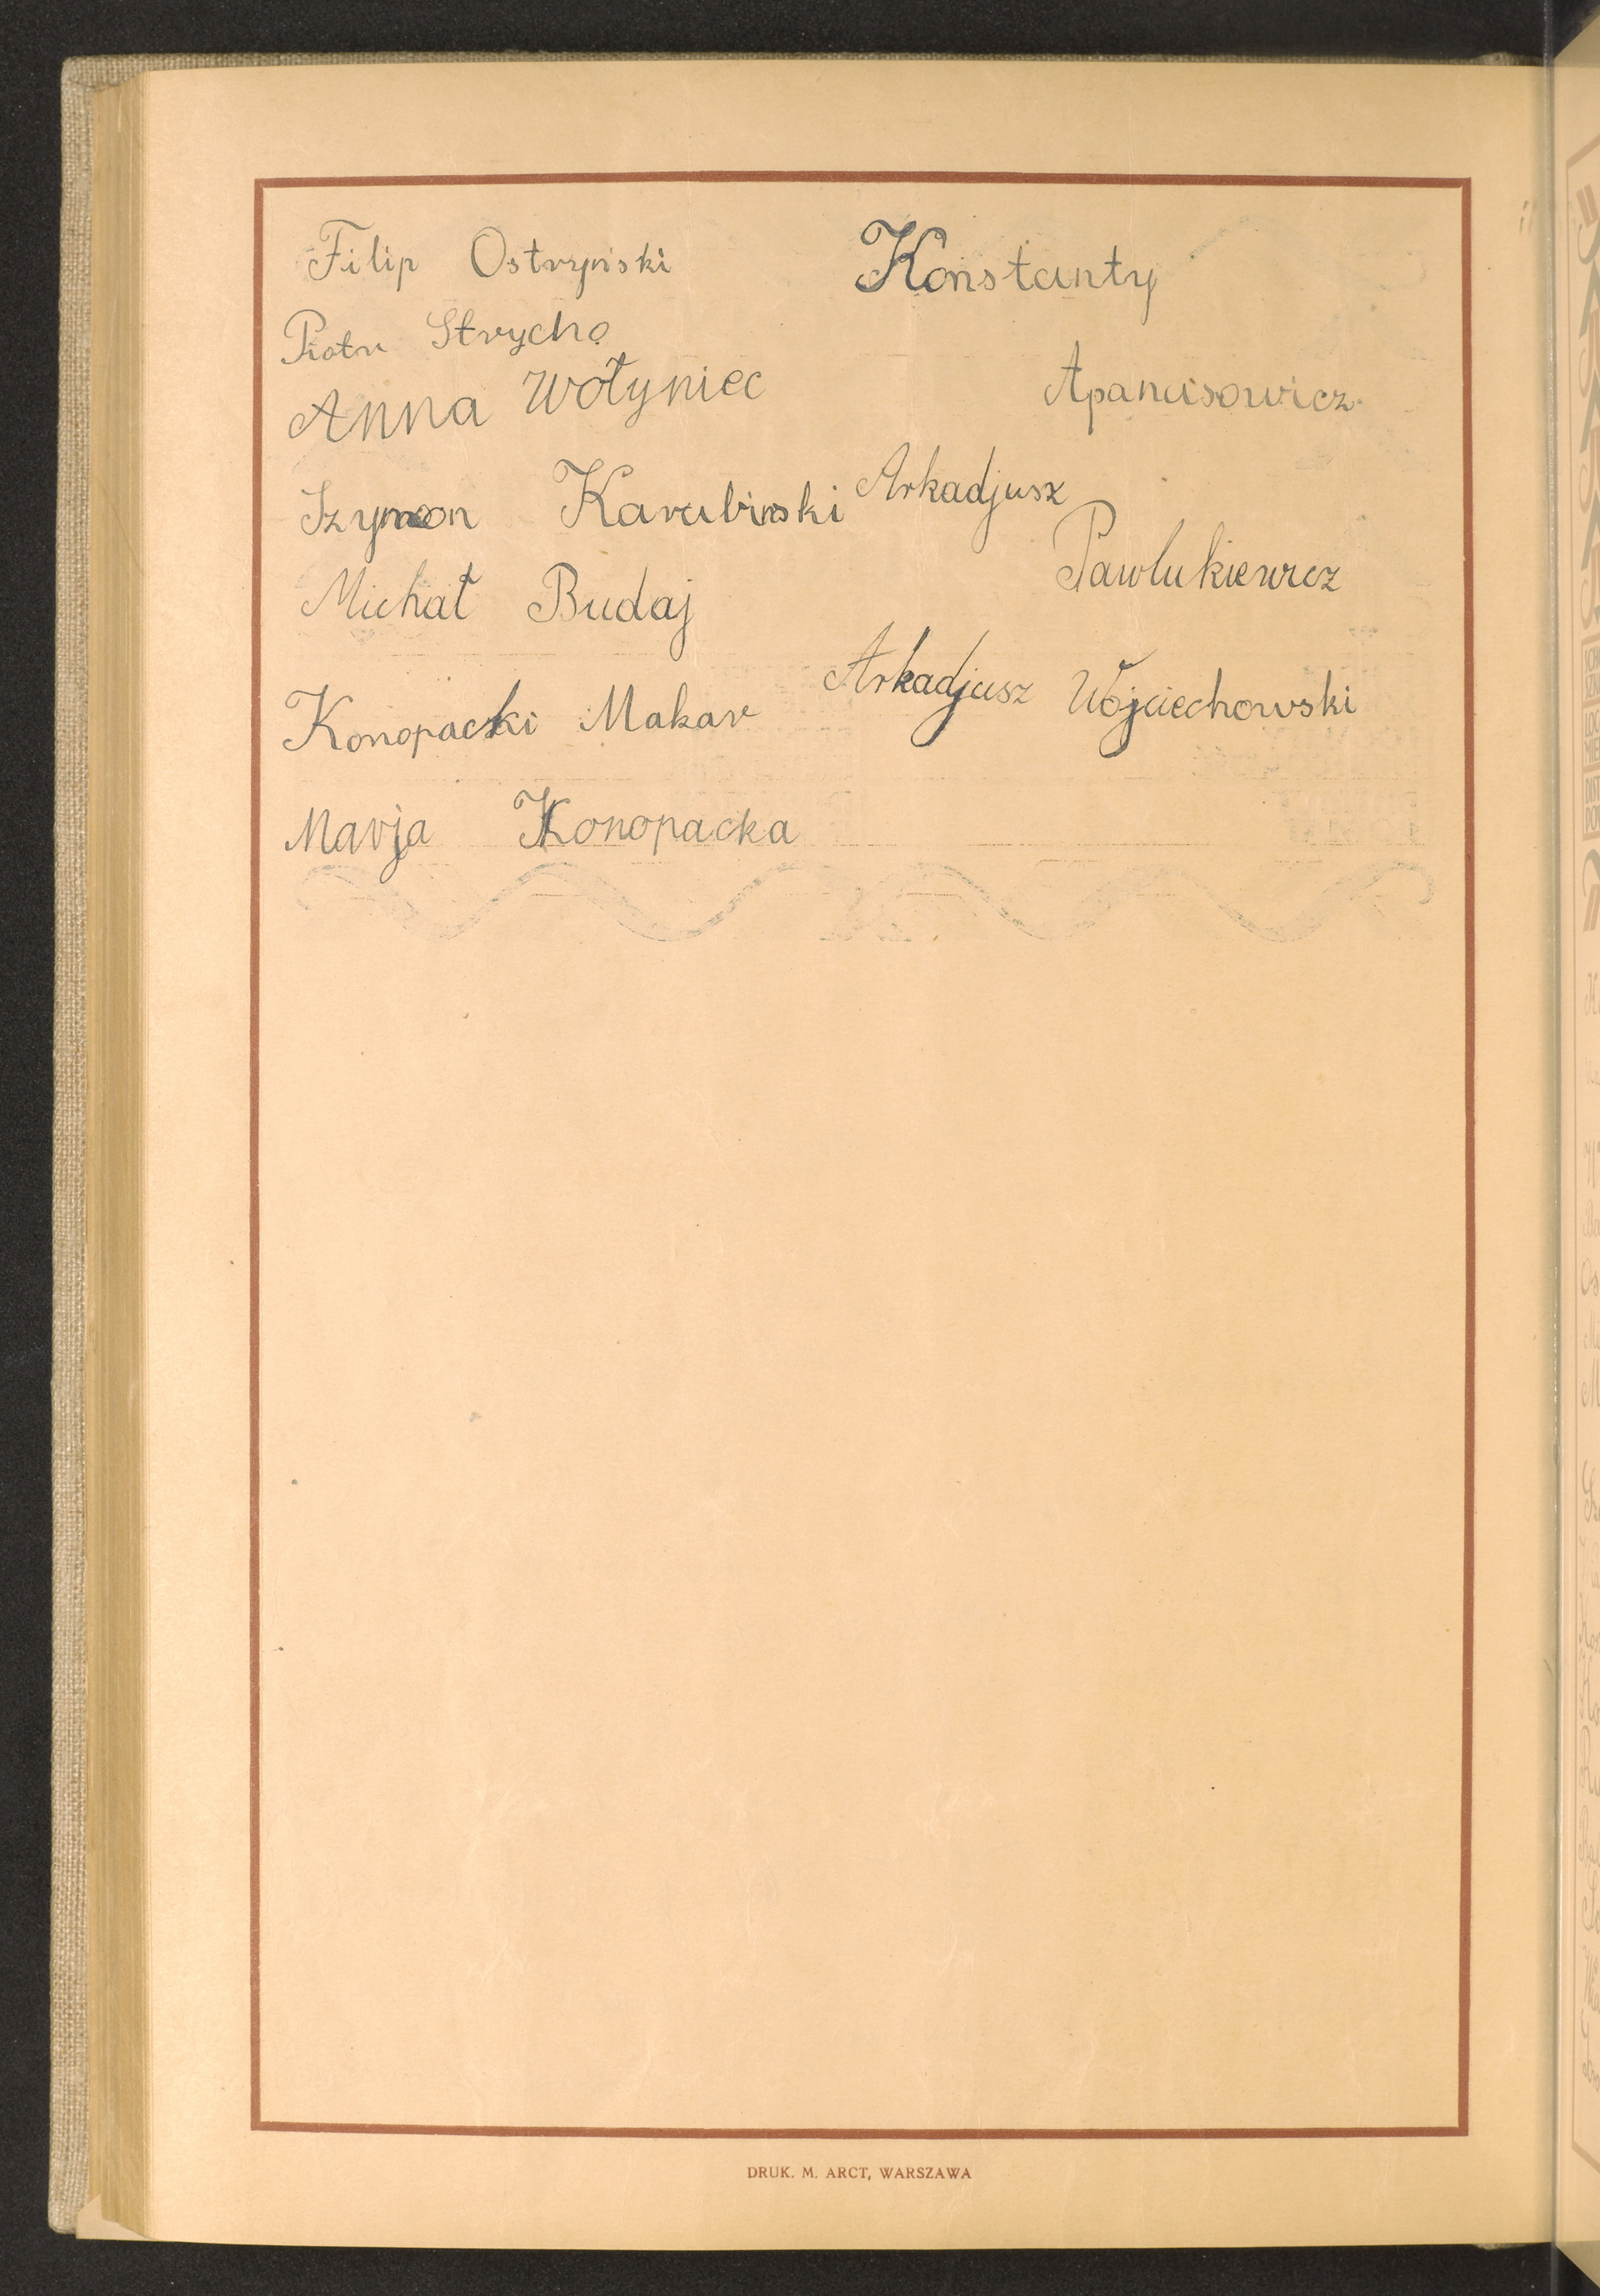 Filip Ostryński
Piotr Strycho
Anna Wołyniec
Szymon Karabinski
Michał Budaj
Konopacki Makar
Marja Konopacka
Konstanty
Apanasowicz
Arkadjusz
Pawlukiewicz
Arkadjusz Wojciechowski
DRUK. M. ARCT, WARSZAWA